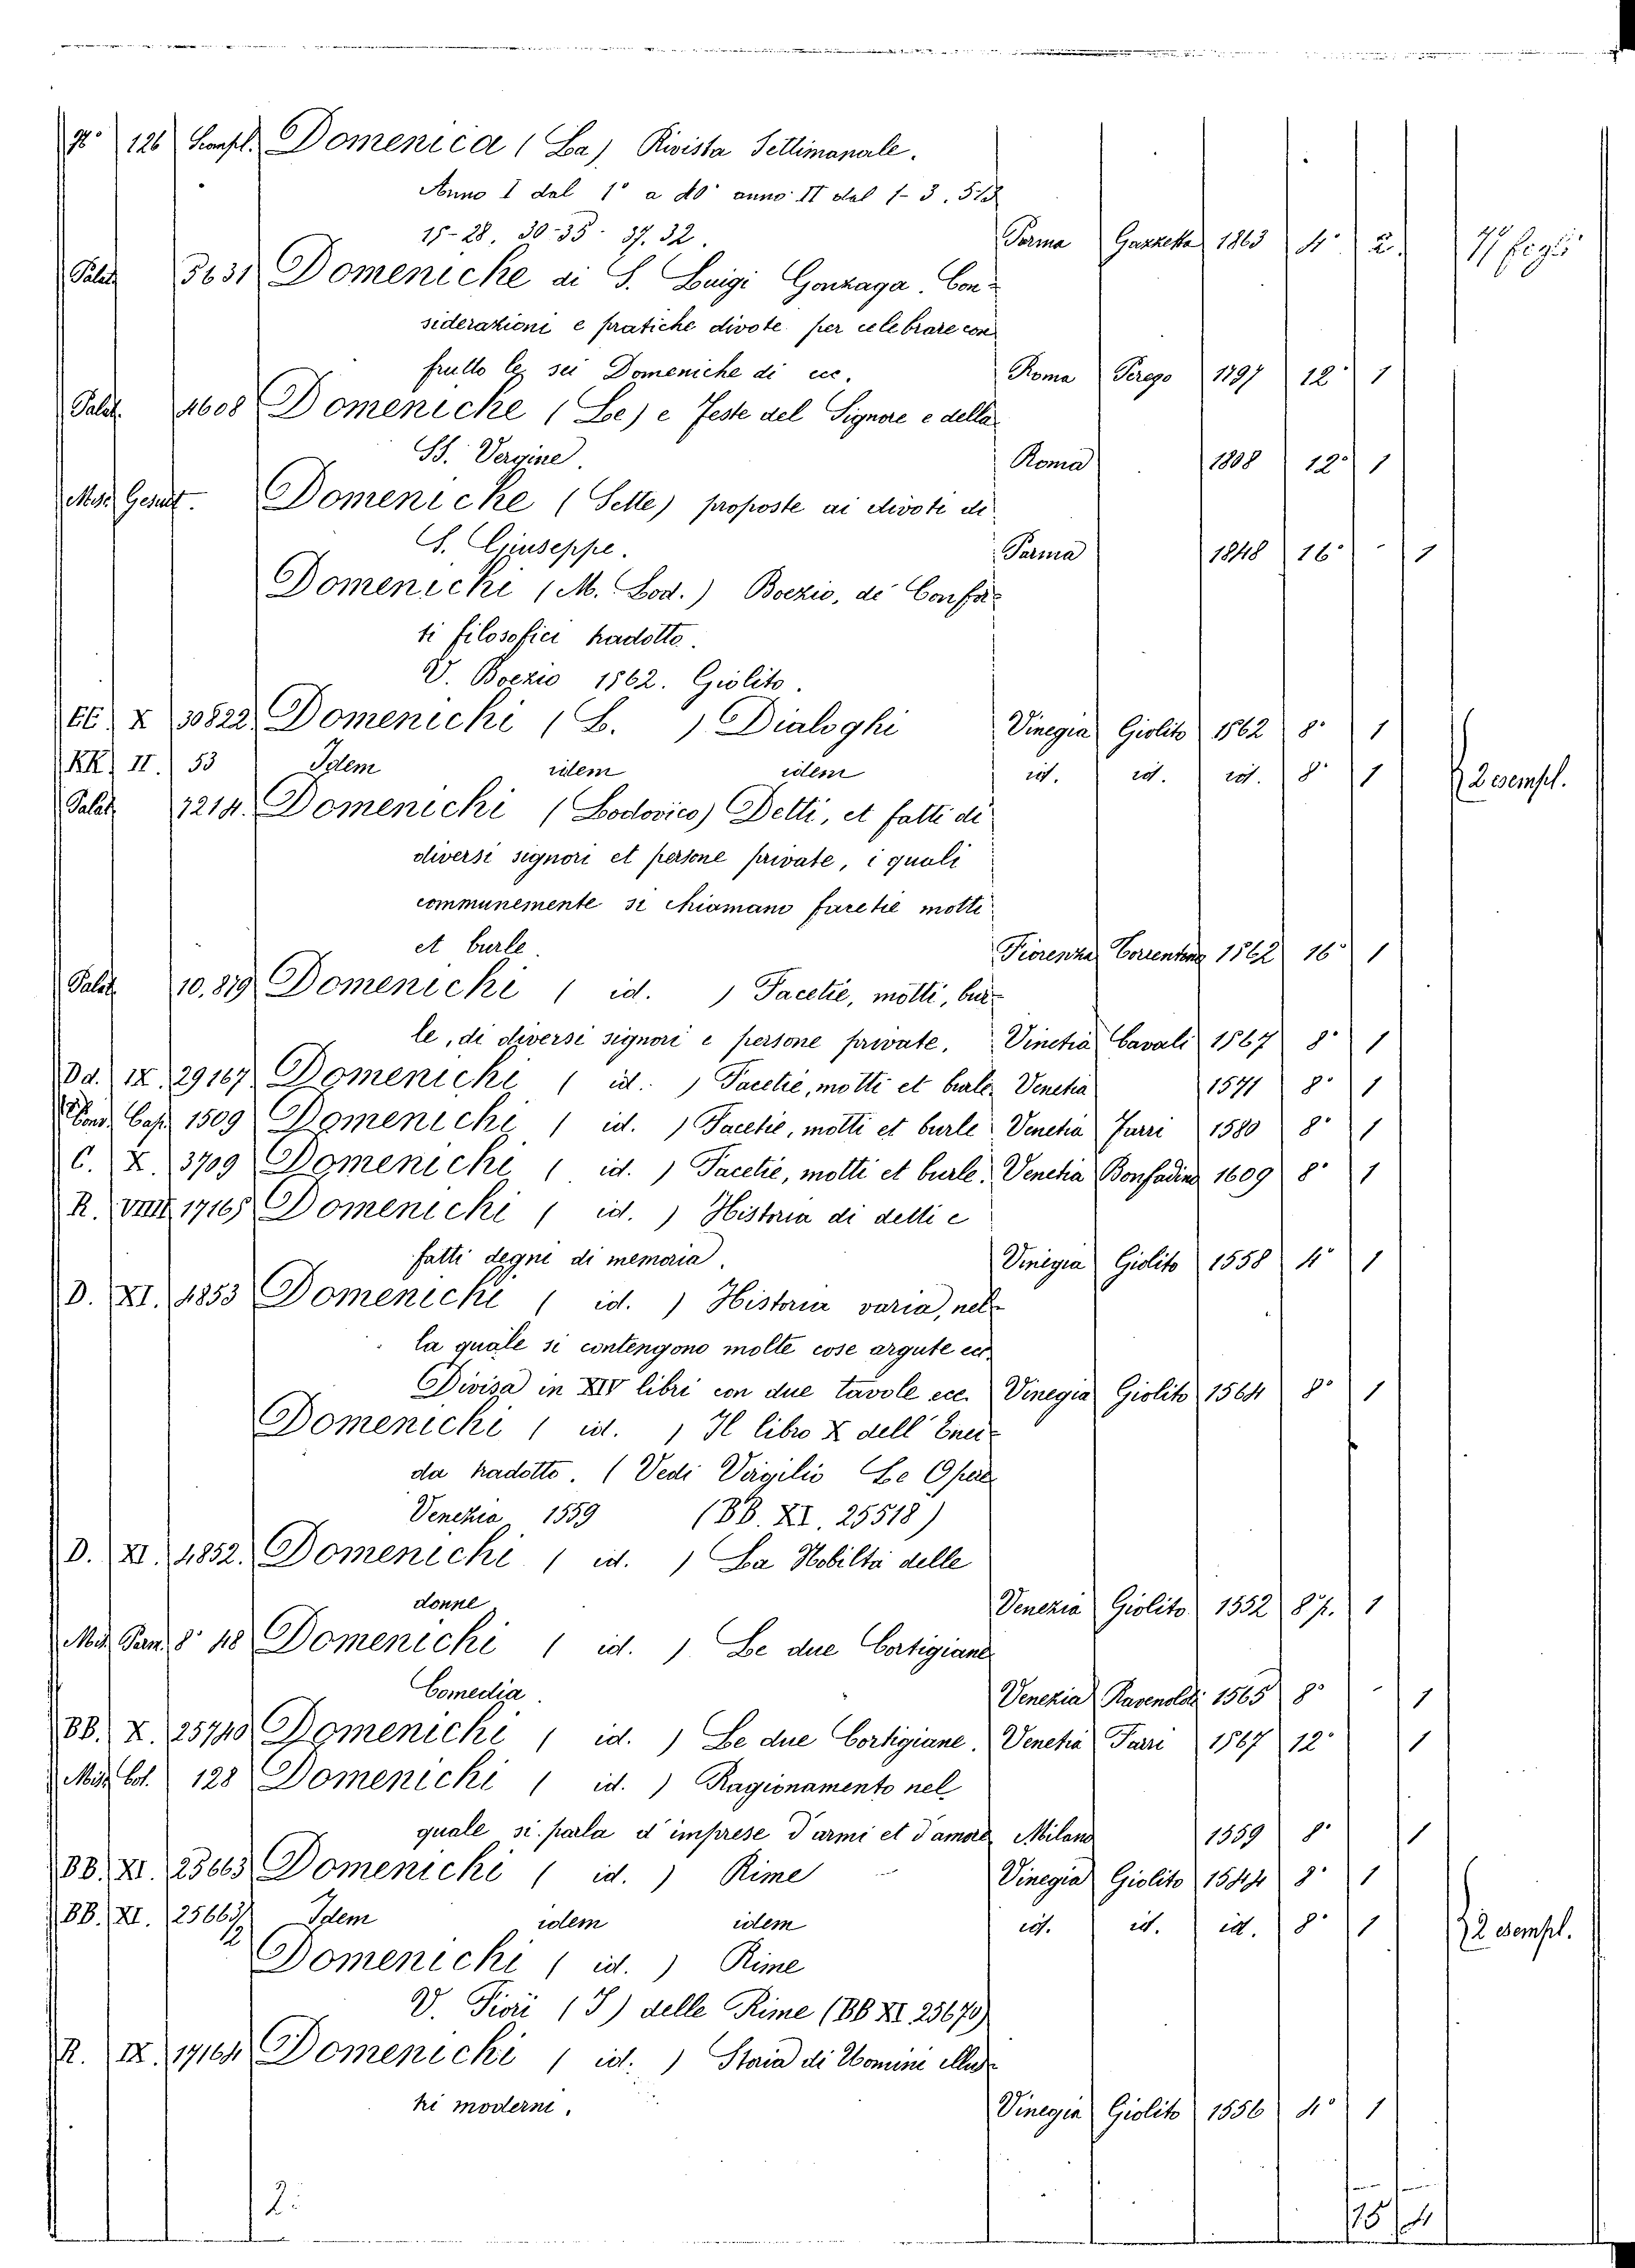 126 Domenica (La) Rivista Settimanale.
Anno I dal 1° a 40 anno II dal 1-3. 5-13
15-28. 30-35 - 37. 32. Parma Gazzetta 1863 4° 2. 77 fogli
Palat. 3631 Domeniche di S. Luigi Gonzaga. Con-
siderazioni e pratiche divote per celebrare con
frutto le sei Domeniche di ecc. Roma Perego 1797 12° 1
Palat. 4608 Domeniche (Le) e Feste del Signore e della
SS. Vergine. Roma 1808 12° 1
Misc. Gesuit. Domeniche (Sette) proposte ai divoti di
S. Giuseppe. Parma 1848 16° - 1
Domenichi (M. Lod.) Boezio, de' Confor-
ti filosofici tradotto.
V. Boezio 1562. Giolito.
EE. X 30822 Domenichi (L. ) Dialoghi Vinegia Giolito 1562 8° 1
KK. II. 53 Idem idem idem id. id. id. 8° 1 2 esempl.
Palat. 7214. Domenichi (Lodovico) Detti, et fatti di
diversi signori et persone private, i quali
communemente si chiamano facetie motti
et burle. Fiorenza Torrentino 1562 16° 1
Palat. 10.879 Domenichi ( id. ) Facetie, motti, bur-
le, di diversi signori e persone private. Vinetia Cavali 1567 8° 1
Dd. IX. 29167 Domenichi ( id. ) Facetie, motti et burle. Venetia 1571 8° 1
1509 Domenichi ( id. ) Facetie, motti et burle Venetia Farri 1580 8° 1
C. X. 3709 Domenichi ( id. ) Facetie, motti et burle. Venetia Bonfadino 1609 8° 1
R. VIII 17165 Domenichi ( id. ) Historia di detti e
fatti degni di memoria. Vinegia Giolito 1558 4° 1
D. XI. 4853 Domenichi ( id. ) Historia varia, nel-
la quale si contengono molte cose argute ecc.
Divisa in XIV libri con due tavole ecc. Vinegia Giolito 1564 8° 1
Domenichi ( id. ) Il libro X dell' Enei-
da tradotto. (Vedi Virgilio Le Opere
Venezia 1559 (BB. XI. 25518)
D. XI. 4852. Domenichi ( id. ) La Nobiltà delle
donne. Venezia Giolito 1552 8° p. 1
8° 48 Domenichi ( id. ) Le due Cortigiane
Comedia. Venezia 1565 8° - 1
BB. X. 25740 Domenichi ( id. ) Le due Cortigiane. Venetia Farri 1567 12° 1
Misc. Col. 128 Domenichi ( id. ) Ragionamento nel
quale si parla d'imprese d'armi et d'amore Milano 1559 8° 1
BB. XI. 25663 Domenichi ( id. ) Rime Vinegia Giolito 1544 8° 1
BB. XI. 25663/2 Idem idem idem id. id. id. 8° 1 2 esempl.
Domenichi ( id. ) Rime
V. Fiori (I) delle Rime (BB XI 25670)
R. IX. 17164 Domenichi ( id. ) Storia di Uomini illus-
tri moderni. Vinegia Giolito 1556 4° 1
2. 18 4